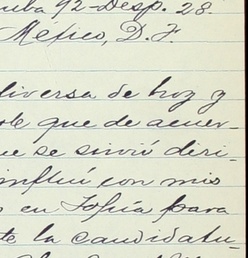 uba 92-Desp. 28.
México, D. F.
diversa de hoy y
ole que de acuer-
ue se sirvió diri-
influí con mis
s en Sofía para
te la candidatu-